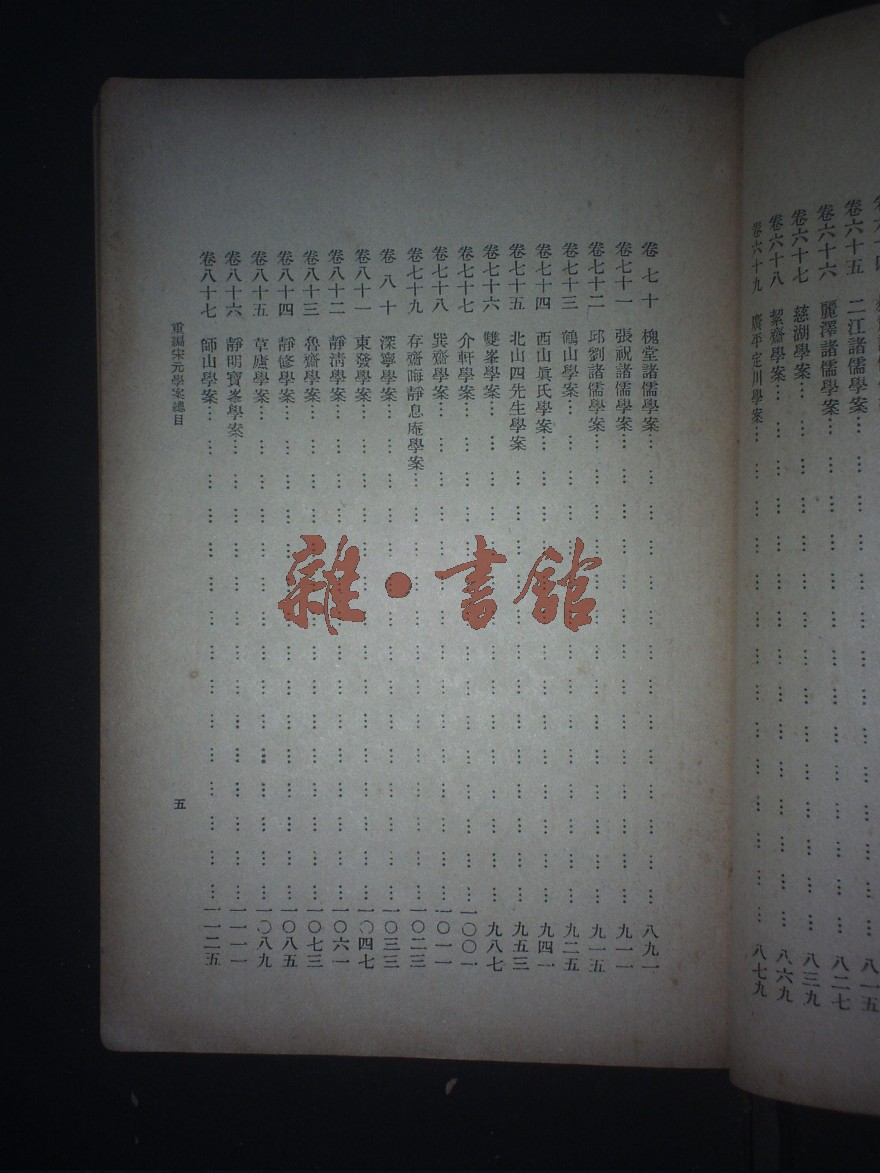 卷六十五 二江諸儒學案 八一五
卷六十六 麗澤諸儒學案 八二七
卷六十七 慈湖學案 八三九
卷六十八 絜齋學案 八六九
卷六十九 廣平定川學案 八七九
卷七十 槐堂諸儒學案 八九一
卷七十一 張祝諸儒學案 九一一
卷七十二 邱劉諸儒學案 九一五
卷七十三 鶴山學案 九二五
卷七十四 西山眞氏學案 九四一
卷七十五 北山四先生學案 九五三
卷七十六 雙峯學案 九八七
卷七十七 介軒學案 一〇〇一
卷七十八 巽齋學案 一〇一一
卷七十九 存齋晦靜息庵學案 一〇二三
卷八十 深寧學案 一〇三三
卷八十一 東發學案 一〇四七
卷八十二 靜淸學案 一〇六一
卷八十三 魯齋學案 一〇七三
卷八十四 靜修學案 一〇八五
卷八十五 草廬學案 一〇八九
卷八十六 靜明寶峯學案 一一一一
卷八十七 師山學案 一一二五
重編宋元學案總目
五
雜・書館